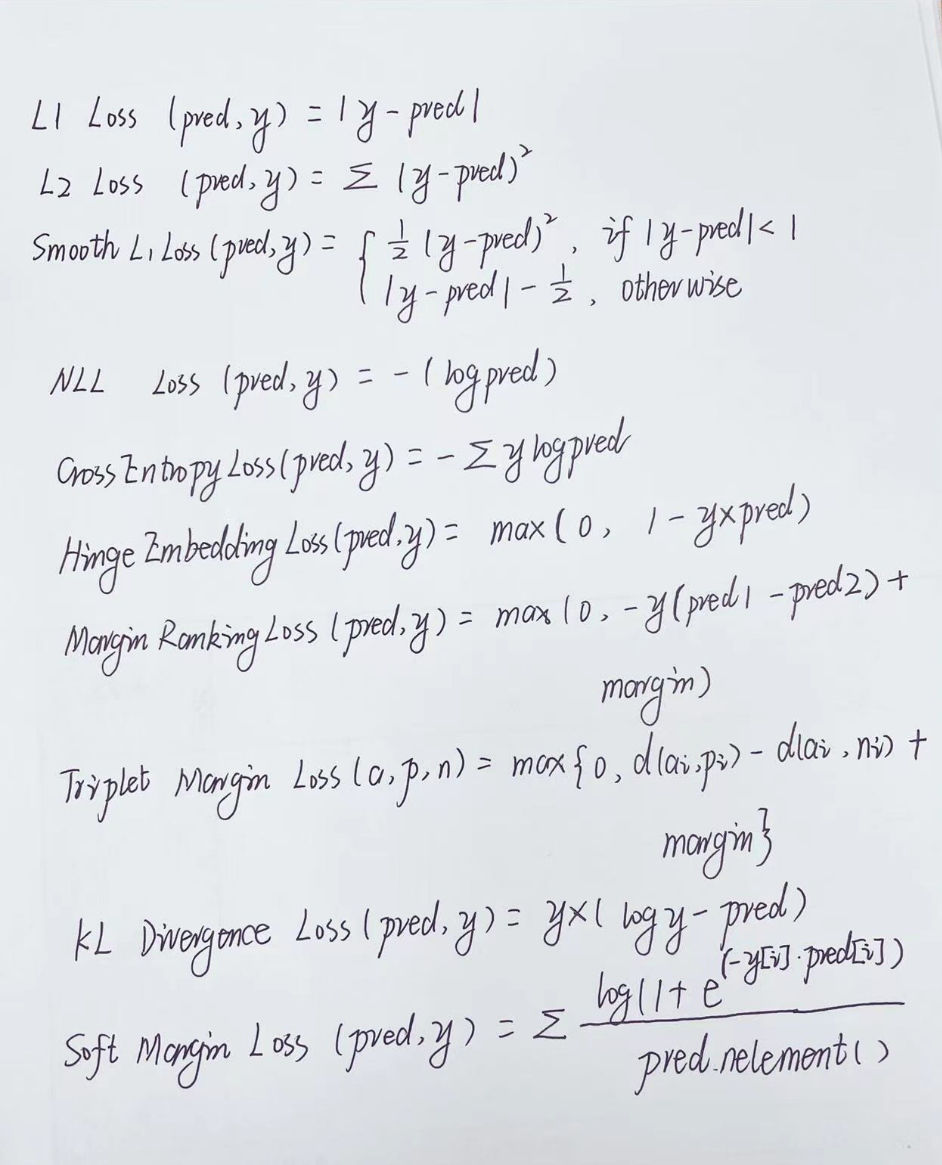 L1 Loss (pred, y) = |y - pred|
L2 Loss (pred, y) = Σ (y - pred)²
Smooth L1 Loss (pred, y) = { ½ (y - pred)², if |y - pred| < 1
|y - pred| - ½, otherwise
NLL Loss (pred, y) = - (log pred)
Cross Entropy Loss (pred, y) = - Σ y log pred
Hinge Embedding Loss (pred, y) = max (0, 1 - y × pred)
Margin Ranking Loss (pred, y) = max (0, - y (pred1 - pred2) +
margin)
Triplet Margin Loss (a, p, n) = max {0, d(ai, pi) - d(ai, ni) +
margin}
KL Divergence Loss (pred, y) = y × (log y - pred)
Soft Margin Loss (pred, y) = Σ log(1 + e^(-y[i] · pred[i])
pred.nelement()